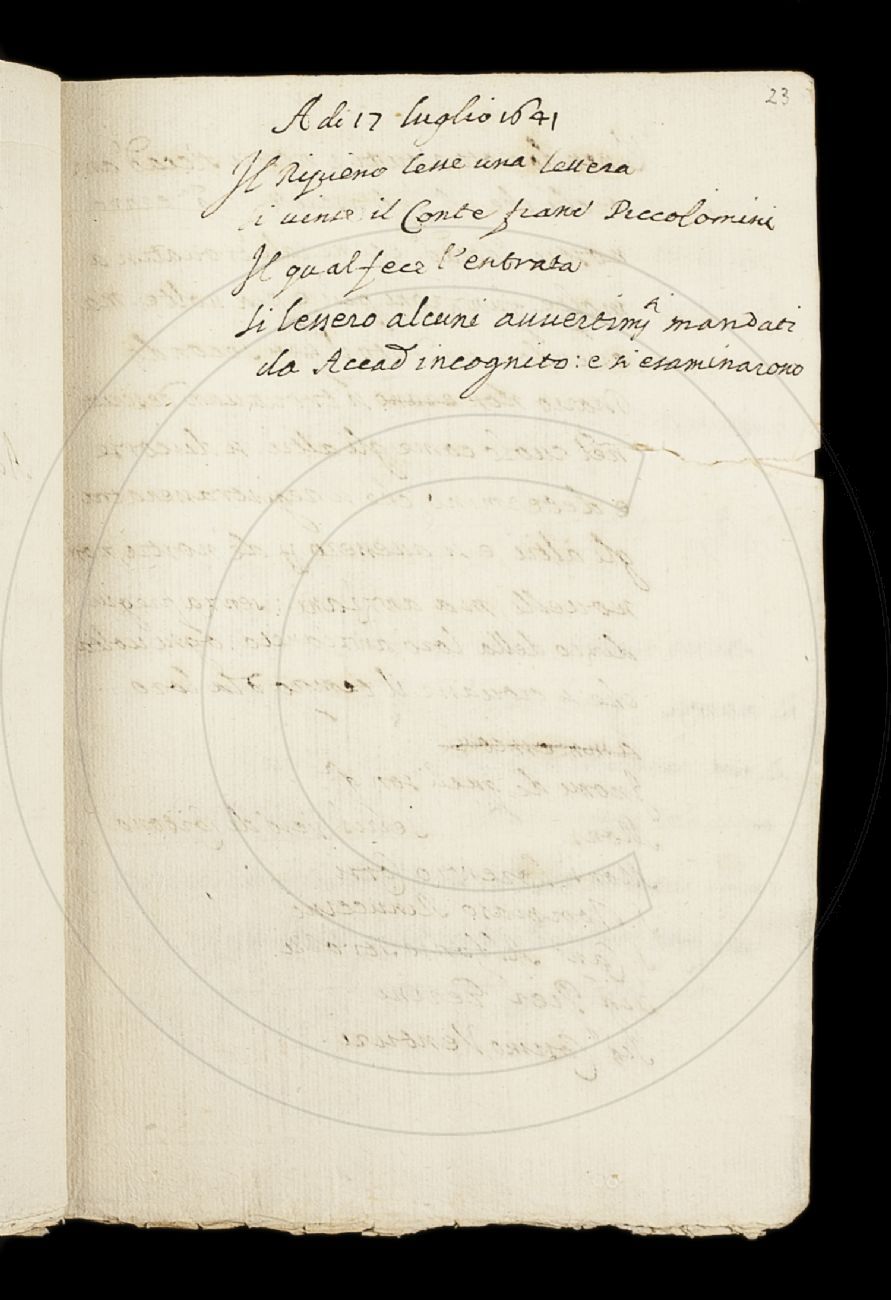 23
A di 17 luglio 1641
Il Ripieno lesse una lettera
si vinse il Conte franc Piccolomini
Il qual fece l'entrata
si lessero alcuni avvertim^ti mandati
da Accad incognito: e si esaminarono